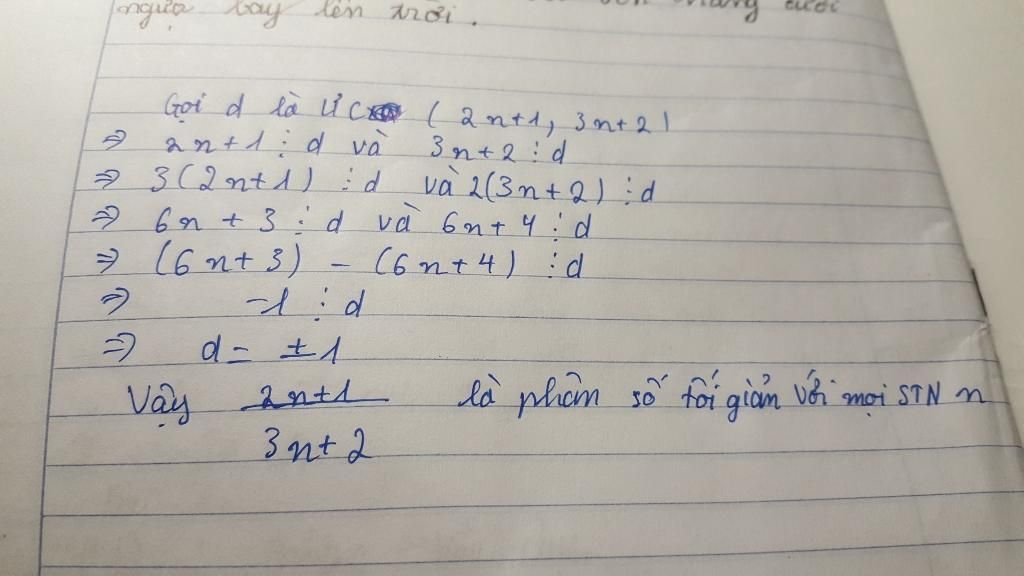 ngựa bay lên trời.
Gọi d là ƯC ( 2n+1, 3n+2)
⇒ 2n+1 ⋮ d và 3n+2 ⋮ d
⇒ 3(2n+1) ⋮ d và 2(3n+2) ⋮ d
⇒ 6n + 3 ⋮ d và 6n+4 ⋮ d
⇒ (6n+3) - (6n+4) ⋮ d
⇒ -1 ⋮ d
⇒ d = ±1
Vậy 2n+1 là phân số tối giản với mọi STN n
3n+2